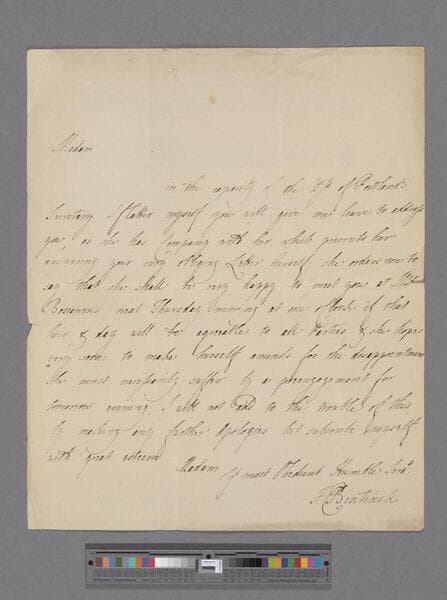 Madam
in the capacity of the Dss of Portland's
Secretary I flatter myself you will give me leave to address
you, as she has Company with her which prevents her
answering your very obliging Letter herself. she orders me to
say that she shall be very happy to meet you at Mrs
Boscawens next Thursday morning at one o'Clock if that
hour & day will be agreable to all Parties & she hopes
very soon to make herself amends for the disappointment
she must necessarily suffer by a preengagement for
tomorrow evening. I will not add to the trouble of this
by making any further Apologies but subscribe myself
with great esteem
Madam
Yr most Obedient Humble Servt.
Bentinck